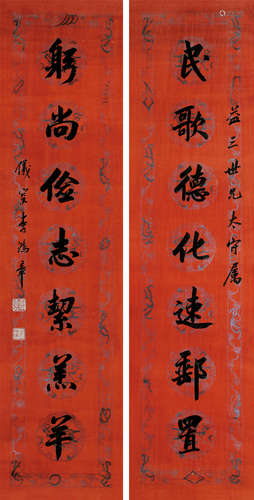 民歌德化速郵置
益三世兄太守屬
躬尚儉志絜羔羊
儀叟李鴻章